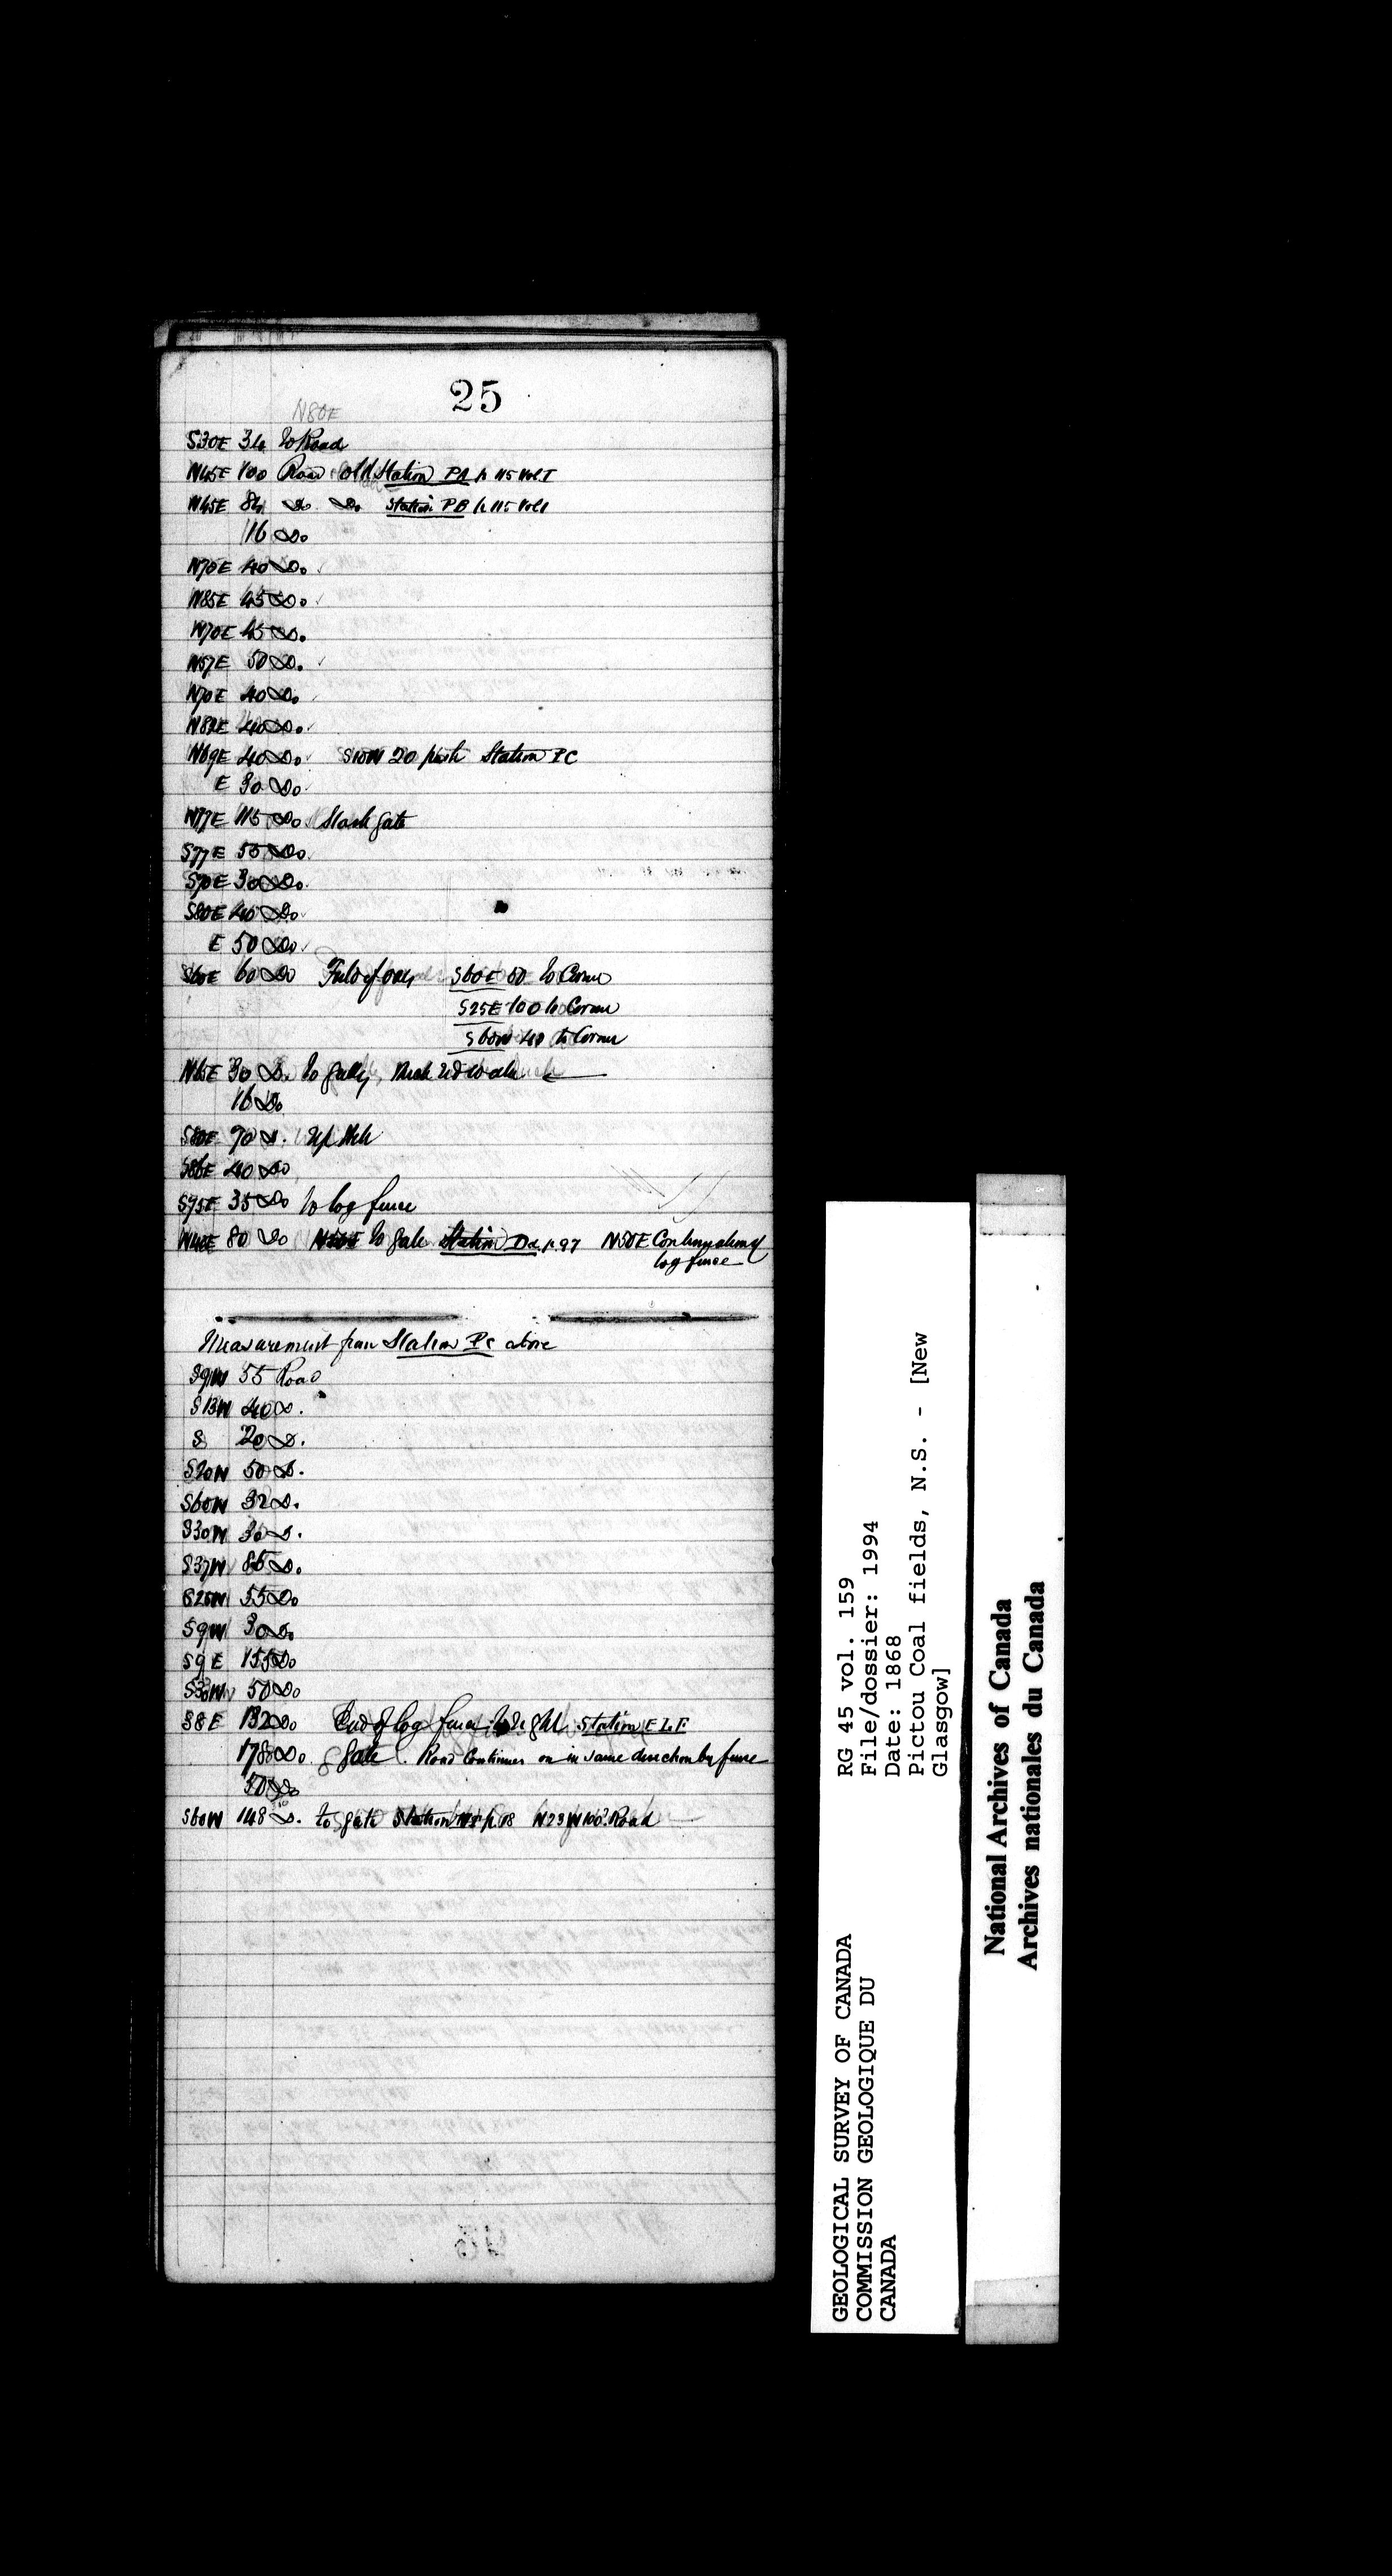 25
N80E
S30E 34 to Road
N45E 100 Road old Station PA p 115 Vol I
N45E 84 Do Do Station PB p 115 Vol I
16 Do
N70E 40 Do
N85E 45 Do
N70E 45 Do.
N57E 50 Do.
N70E 40 Do.
N82E 40 Do.
N69E 40 Do S10W 20 Station PC
E 30 Do
N77E 115 Do Slash gate
S77E 55 Do
S70E 30 Do.
S80E 40 Do
E 50 Do
S60E 60 Do Field of S60E 50 to Corner
S25E 100 to Corner
S60W 40 to Corner
N65E 30 Do. to gully,
16 Do
S80E 90 Do. Up
S86E 40 Do
S75E 35 Do to log fence
N40E 80 Do to gate Station p. 97 N50E Continuation of
log fence
Measurement from Station PC above
S9W 55 Road
S13W 40 Do.
S 20 Do.
S20W 50 Do.
S60W 32 Do.
S30W 30 Do.
S37W 85 Do.
S25W 55 Do
S9W 30 Do.
S9E 155 Do
S30W 50 Do
S8E 132 Do End of log fence to right Station ELF
178 Do. gate. Road Continues on in same direction by fence
50 Do
S60W 148 Do. to gate Station p. 18 N23W 100. Road
RG 45 vol. 159
File/dossier: 1994
Date: 1868
Pictou Coal fields, N.S. - [New
Glasgow]
GEOLOGICAL SURVEY OF CANADA
COMMISSION GEOLOGIQUE DU
CANADA
National Archives of Canada
Archives nationales du Canada